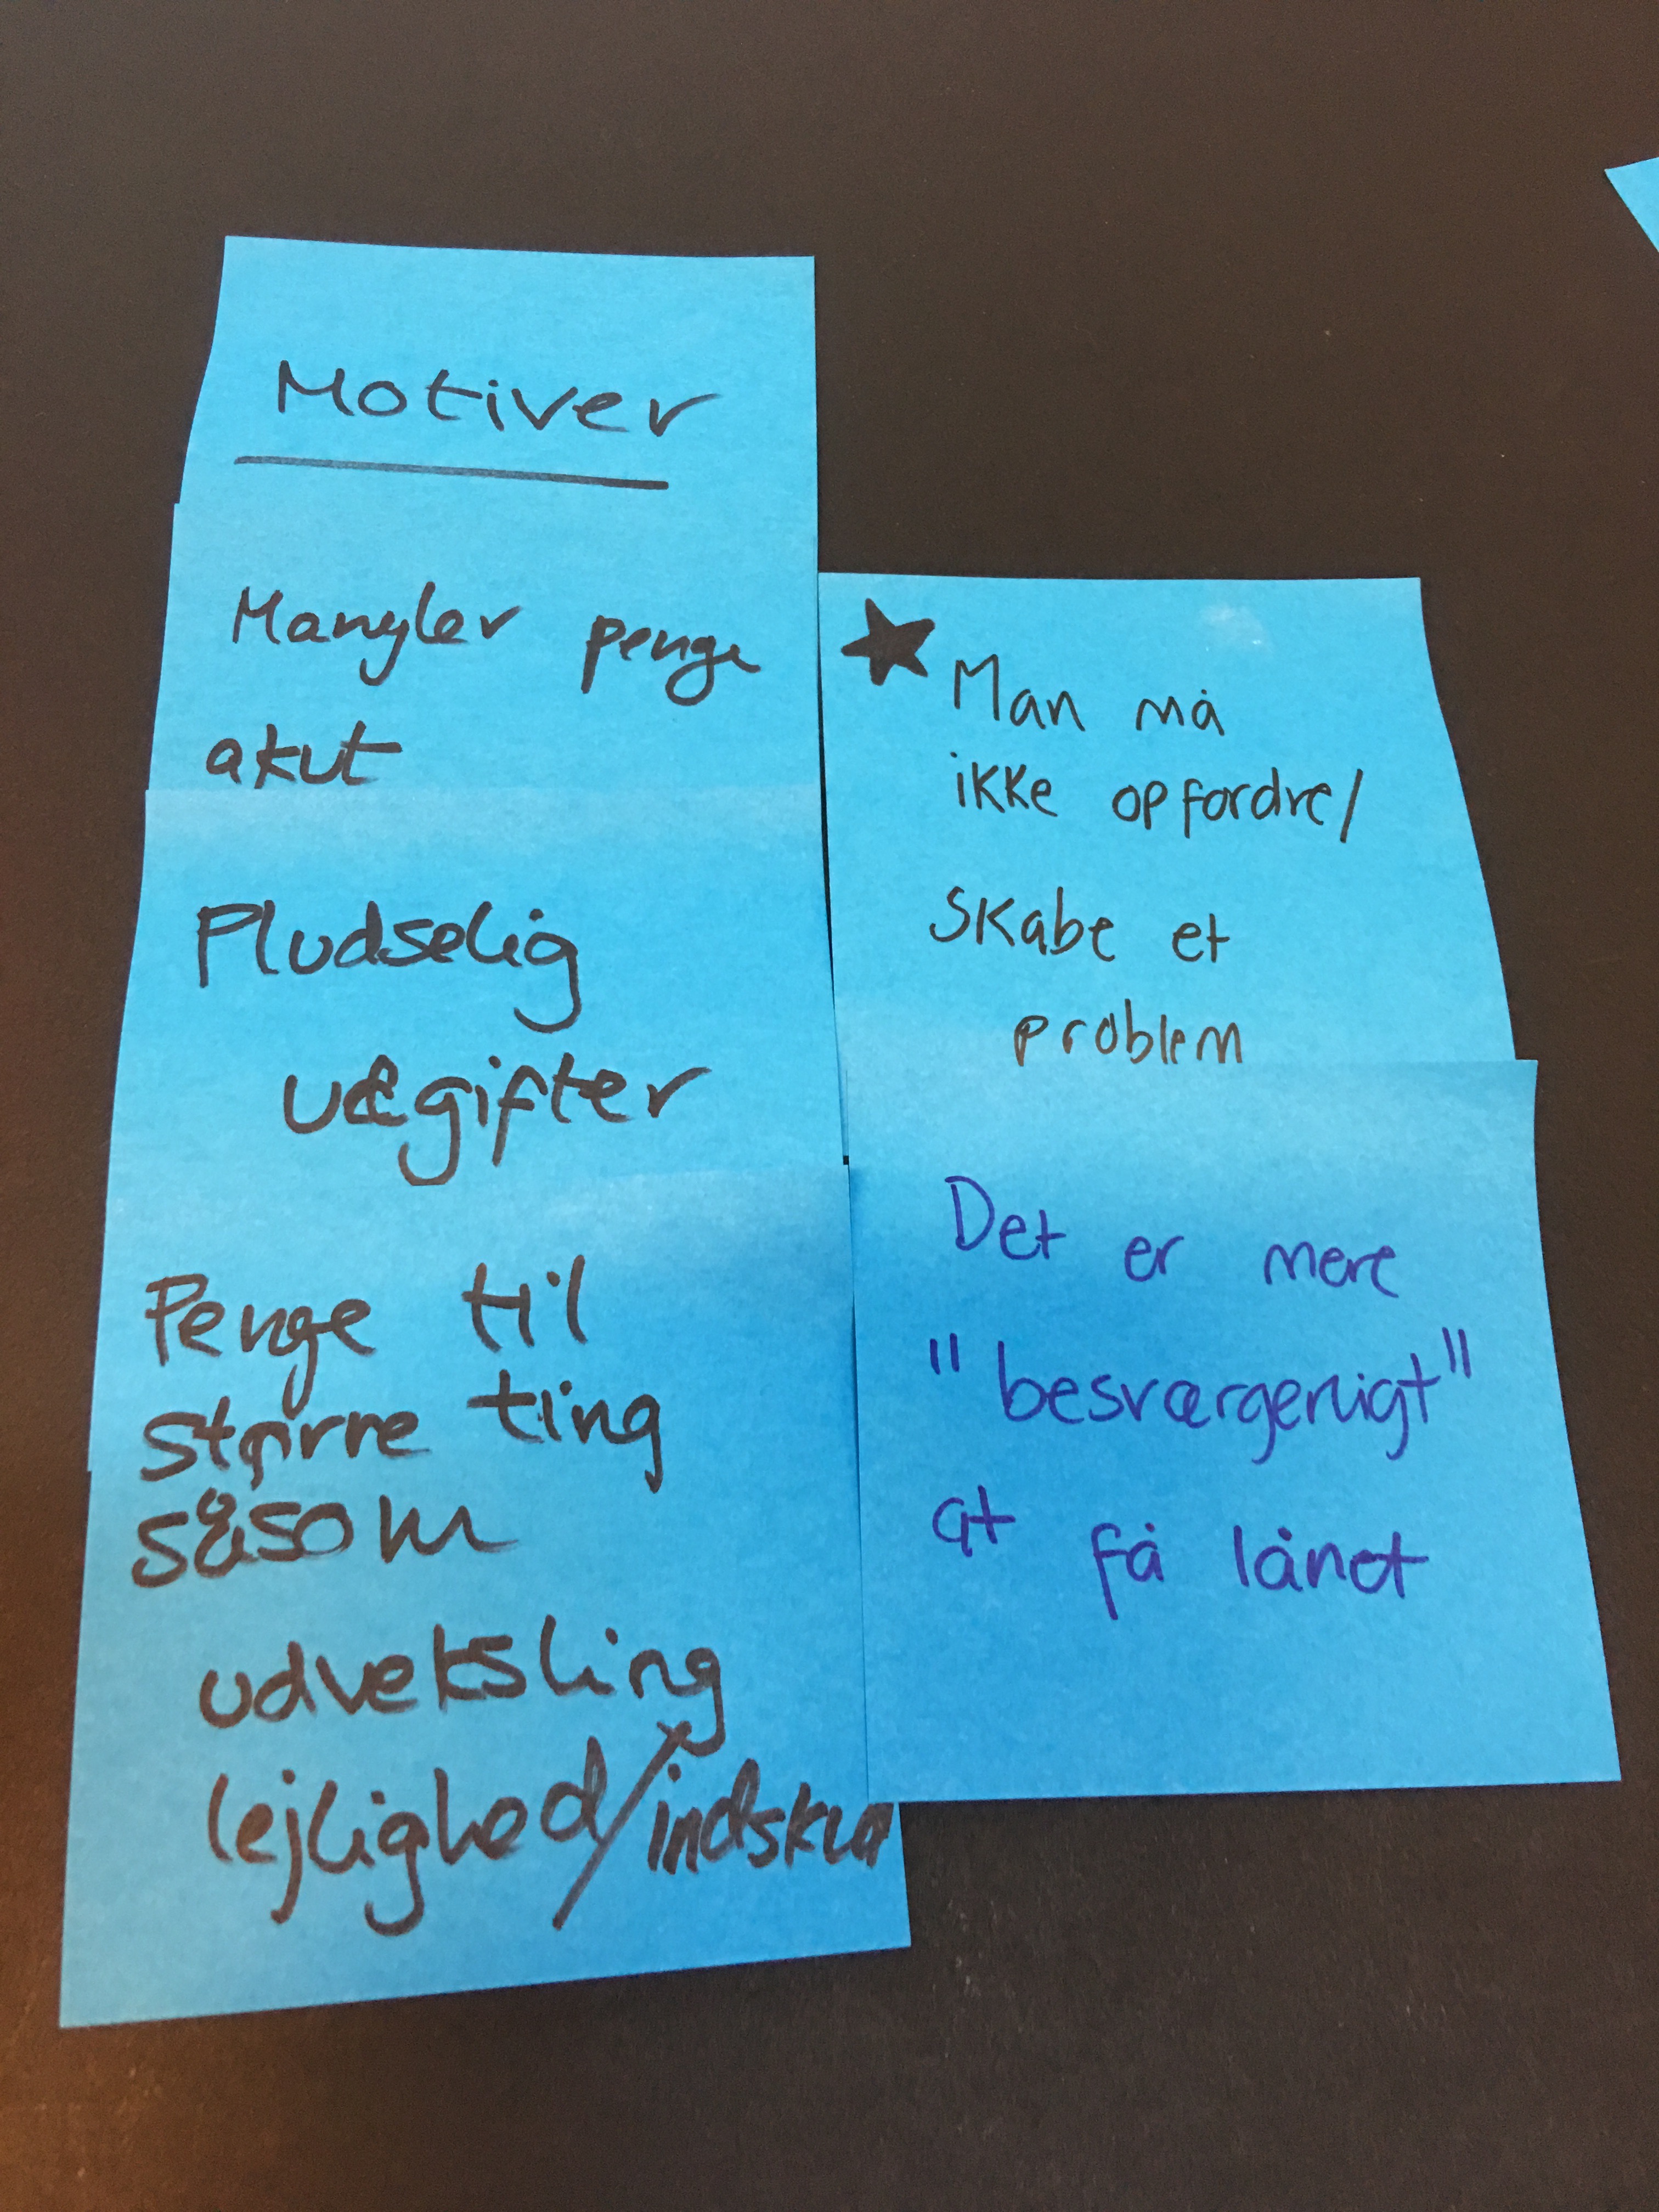 Motiver
Mangler penge
akut
Pludselig
udgifter
Penge til
større ting
såsom
udveksling
lejlighed/indskud
★ Man må
ikke opfordre/
skabe et
problem
Det er mere
"besværgenligt"
at få lånet